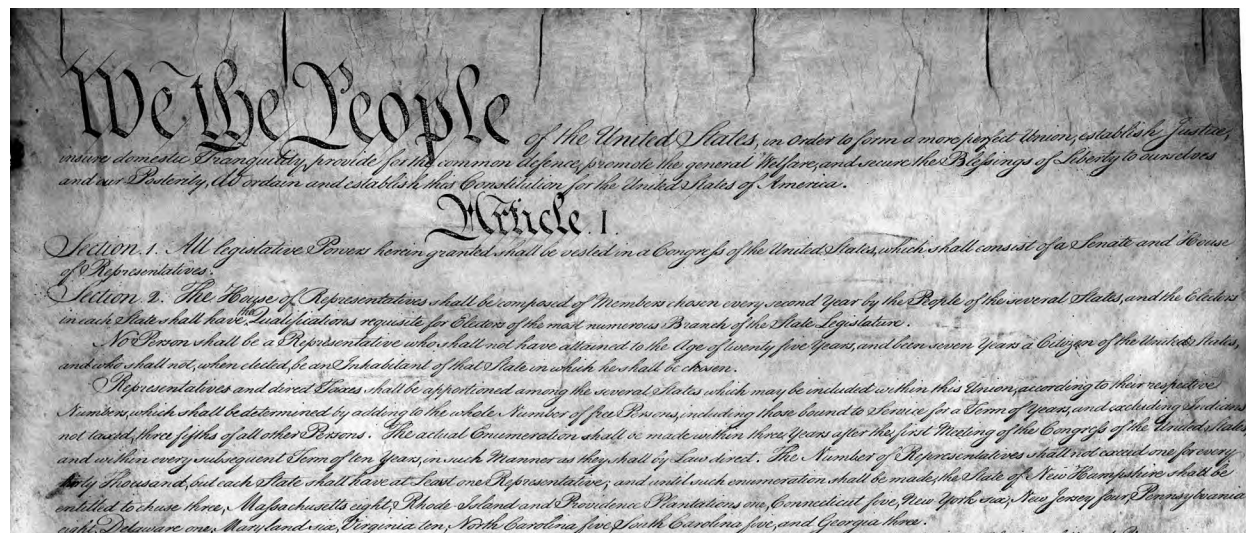 We the People of the United States, in Order to form a more perfect Union, establish Justice,
insure domestic Tranquility, provide for the common defence, promote the general Welfare, and secure the Blessings of Liberty to ourselves
and our Posterity, do ordain and establish this Constitution for the United States of America.
Article. I.
Section. 1. All legislative Powers herein granted shall be vested in a Congress of the United States, which shall consist of a Senate and House
of Representatives.
Section. 2. The House of Representatives shall be composed of Members chosen every second Year by the People of the several States, and the Electors
in each State shall have the Qualifications requisite for Electors of the most numerous Branch of the State Legislature.
No Person shall be a Representative who shall not have attained to the Age of twenty five Years, and been seven Years a Citizen of the United States,
and who shall not, when elected, be an Inhabitant of that State in which he shall be chosen.
Representatives and direct Taxes shall be apportioned among the several States which may be included within this Union, according to their respective
Numbers, which shall be determined by adding to the whole Number of free Persons, including those bound to Service for a Term of Years, and excluding Indians
not taxed, three fifths of all other Persons. The actual Enumeration shall be made within three Years after the first Meeting of the Congress of the United States,
and within every subsequent Term of ten Years, in such Manner as they shall by Law direct. The Number of Representatives shall not exceed one for every
thirty Thousand, but each State shall have at Least one Representative; and until such enumeration shall be made, the State of New Hampshire shall be
entitled to chuse three, Massachusetts eight, Rhode-Island and Providence Plantations one, Connecticut five, New-York six, New Jersey four, Pennsylvania
eight, Delaware one, Maryland six, Virginia ten, North Carolina five, South Carolina five, and Georgia three.